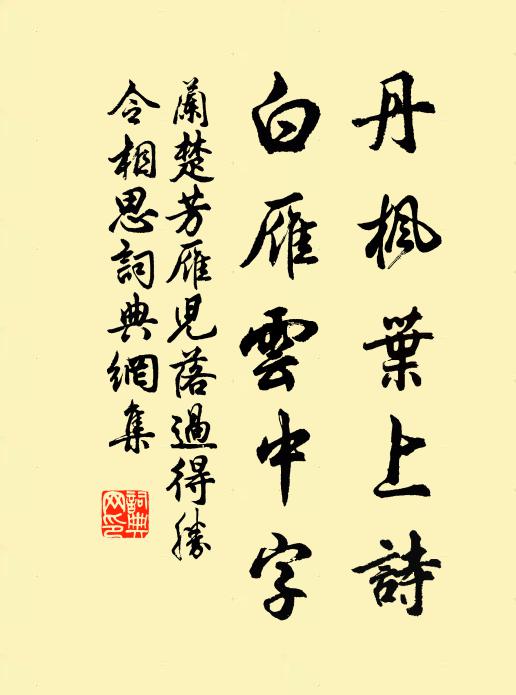 丹楓葉上詩
白雁雲中字
蘭楚芳雁児落過得勝
令相思詞典網集
詞典网印